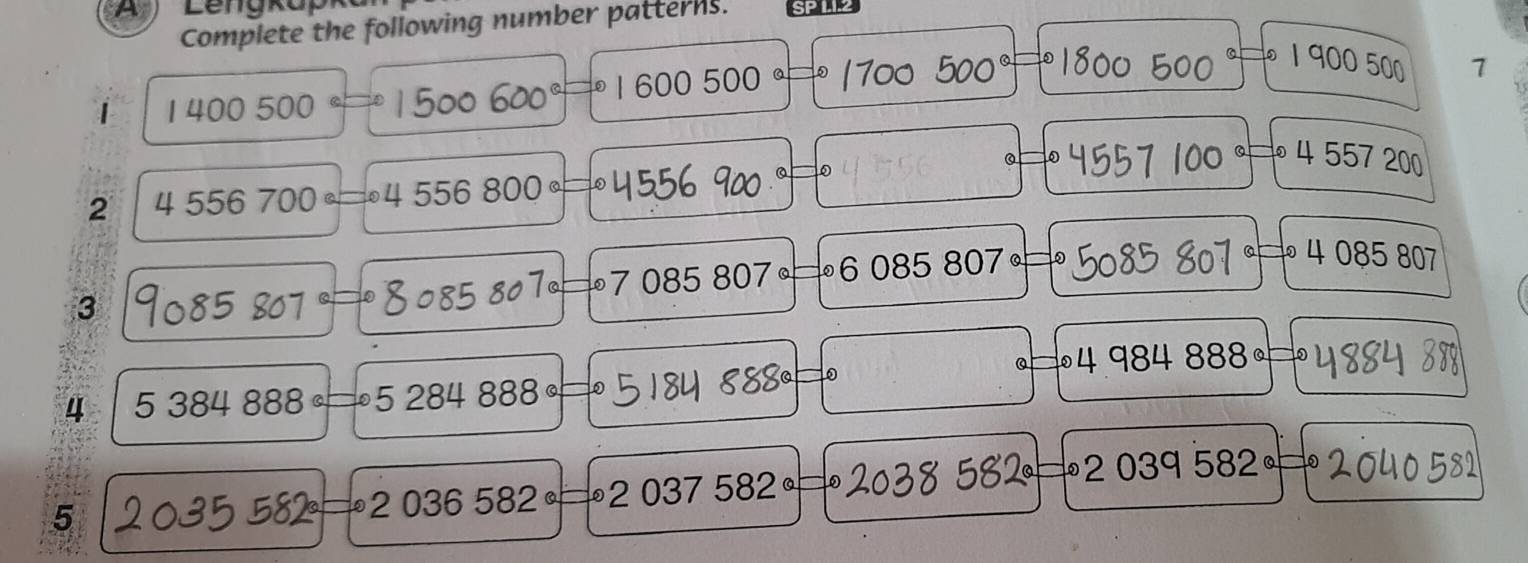 A
Complete the following number patterns. SP 1.1.2
1 1 400 500 1500 600 1 600 500 1700 500 1800 500 1 900 500 7
2 4 556 700 4 556 800 4556 900 4 556 4557 100 4 557 200
3 9085 807 8085 807 7 085 807 6 085 807 5085 807 4 085 807
4 5 384 888 5 284 888 5184 888 4 984 888 4884 888
5 2035 582 2 036 582 2 037 582 2038 582 2 039 582 2040 582